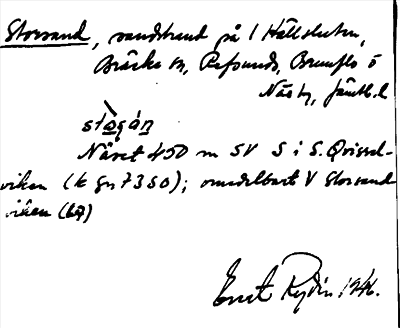 Storsand, sandstrand på l Hällsluten,
Bräcke sn, Refsunds, Brunflo o
Näs tg, Jämtl. l
stògán
Näret 450 m SV S i S. Qvissel-
viken (k gr 7350); omedelbart V Storsand
viken (            )
Ernst Rydin 1946.